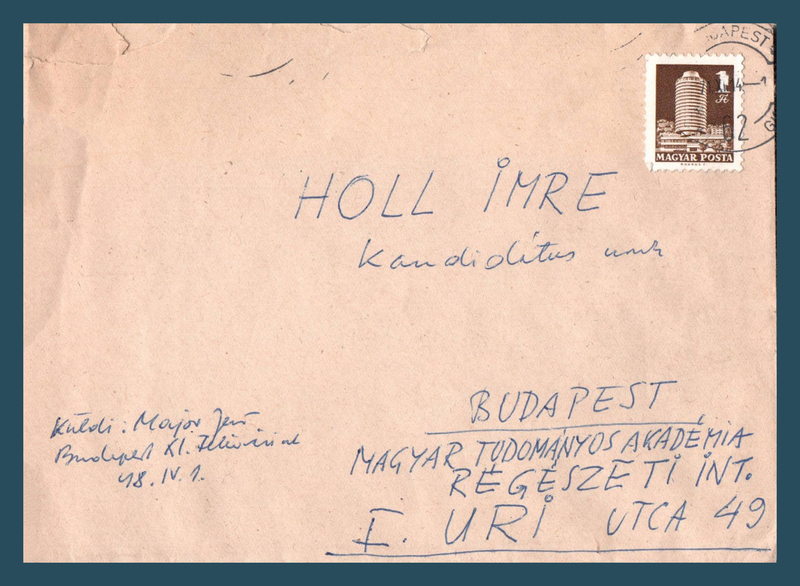 BUDAPEST
1
Ft
MAGYAR POSTA
HOLL IMRE
Kandidátus urnak
BUDAPEST
MAGYAR TUDOMÁNYOS AKADÉMIA
RÉGÉSZETI INT.
I. URI UTCA 49
Küldi: Major Jenő
Budapest XI.
48. IV. 1.